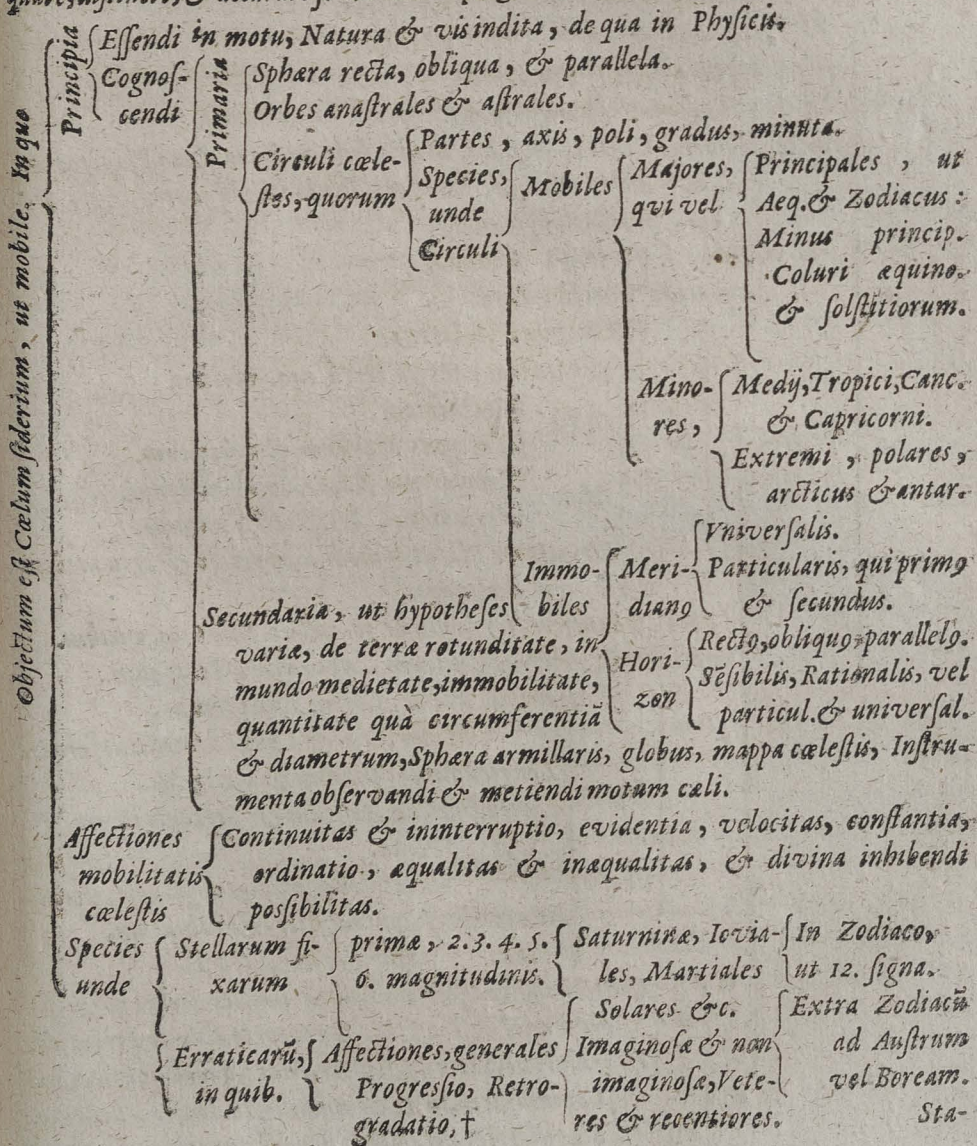 Objectum est Cælum siderium, ut mobile. In quo
Principia
Essendi in motu, Natura & vis indita, de qua in Physicis,
Cognos-
cendi
Primaria
Sphæra recta, obliqua, & parallela.
Orbes anastrales & astrales.
Circuli cæle-
stes, quorum
Partes, axis, poli, gradus, minuta.
Species,
unde
Circuli
Mobiles
Majores,
qui vel
Principales, ut
Aeq. & Zodiacus:
Minus princip.
Coluri æquino.
& solstitiorum.
Mino-
res,
Medij, Tropici, Canc.
& Capricorni.
Extremi, polares,
arcticus & antar.
Immo-
biles
Meri-
dianꝯ
Vniversalis.
Particularis, qui primꝯ
& secundus.
Hori-
zon
Rectꝯ, obliquꝯ, parallelꝯ.
Sẽsibilis, Rationalis, vel
particul. & universal.
Secundaria, ut hypotheses
variæ, de terræ rotunditate, in
mundo medietate, immobilitate,
quantitate quà circumferentiã
& diametrum, Sphæra armillaris, globus, mappa cælestis, Instru-
menta observandi & metiendi motum cæli.
Affectiones
mobilitatis
cælestis
Continuitas & ininterruptio, evidentia, velocitas, constantia,
ordinatio, æqualitas & inæqualitas, & divina inhibendi
possibilitas.
Species
unde
Stellarum fi-
xarum
primæ, 2. 3. 4. 5.
6. magnitudinis.
Saturninæ, Iovia-
les, Martiales
Solares &c.
Imaginosæ & non
imaginosæ, Vete-
res & recentiores.
In Zodiaco,
ut 12. signa.
Extra Zodiacũ
ad Austrum
vel Boream.
Erraticarũ,
in quib.
Affectiones, generales
Progressio, Retro-
gradatio, †
Sta-